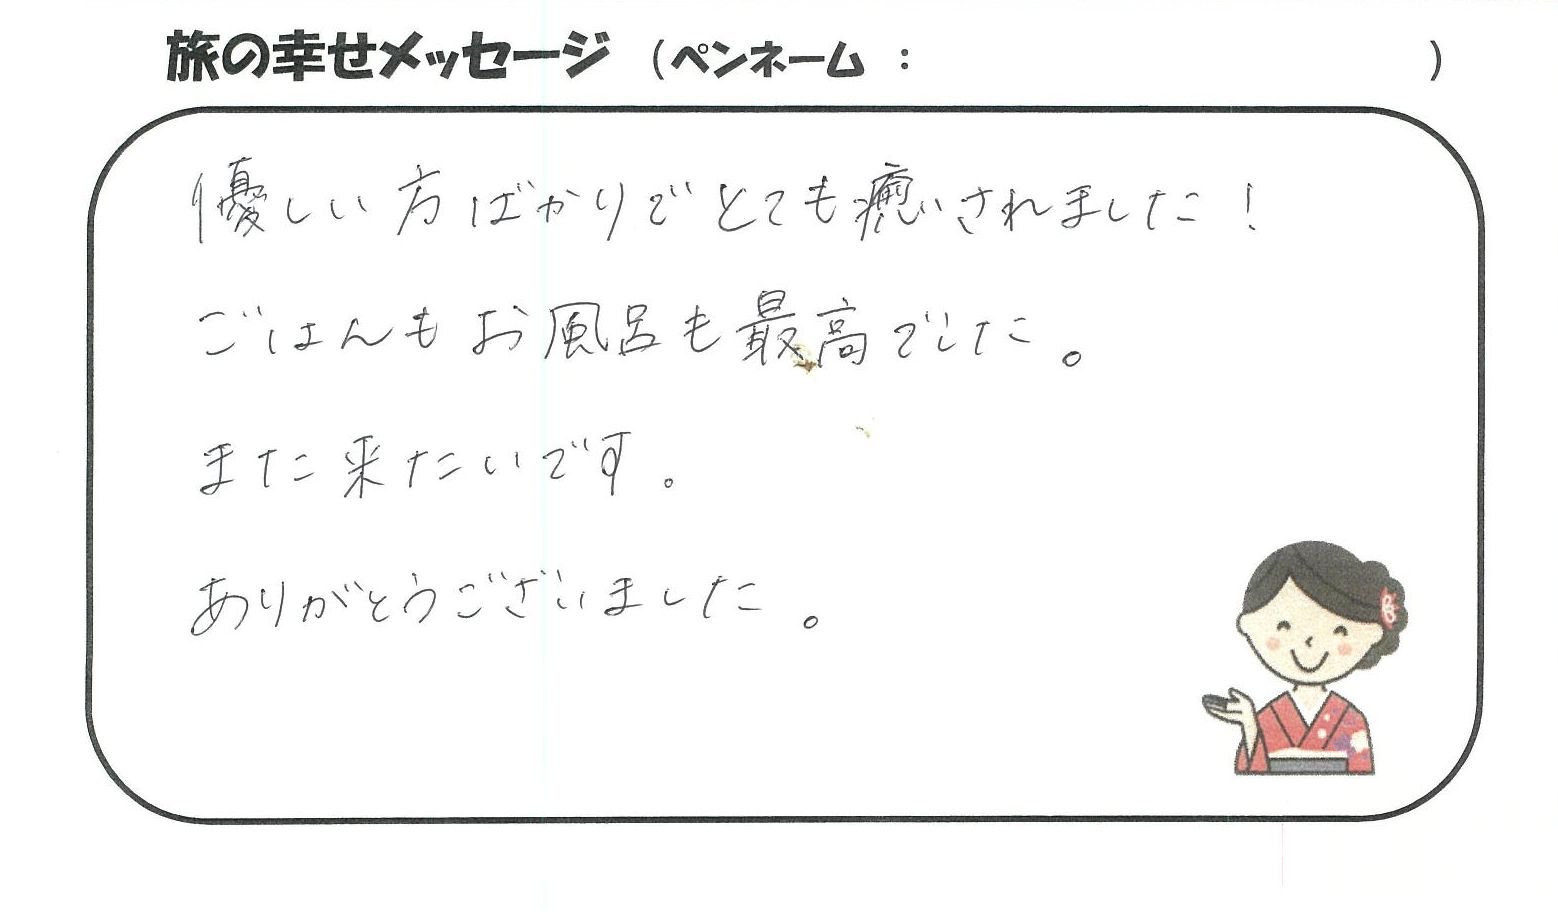 旅の幸せメッセージ （ペンネーム ： ）
優しい方ばかりでとても癒されました！
ごはんもお風呂も最高でした。
また来たいです。
ありがとうございました。